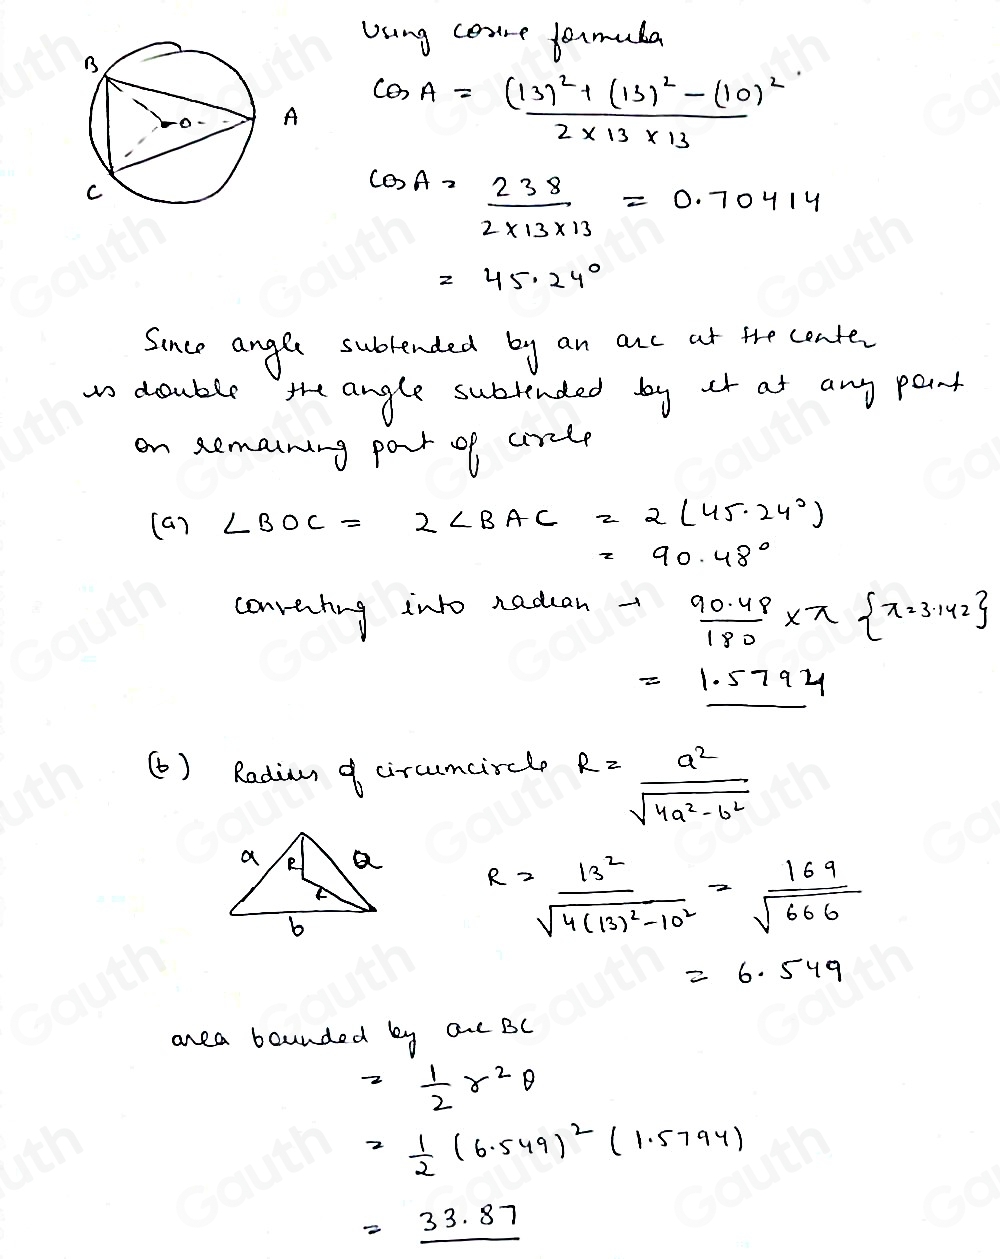 Using cosine formula
B
A
O
C
Cos A = (13)² + (13)² - (10)²
2 × 13 × 13
Cos A = 238 = 0.70414
2 × 13 × 13
= 45.24°
Since angle subtended by an arc at the center
is double the angle subtended by it at any point
on remaining part of circle
(a) ∠BOC = 2∠BAC = 2(45.24°)
= 90.48°
converting into radian → 90.48 × π {π=3.142}
180
= 1.5794
(b) Radius of circumcircle R = a²
√4a² - b²
a R a
r
b
R = 13² = 169
√4(13)² - 10² √666
= 6.549
area bounded by arc BC
= 1/2 r² θ
= 1/2 (6.549)² (1.5794)
= 33.87
Gauth